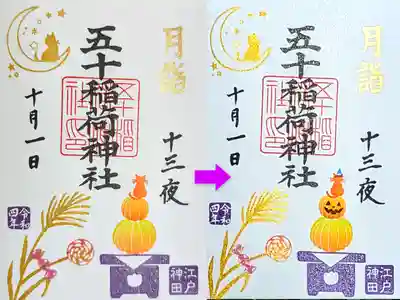 月詣
十三夜
五十稲荷神社
十月一日
令和四年
江戸神田
月詣
十三夜
五十稲荷神社
十月一日
令和四年
江戸神田